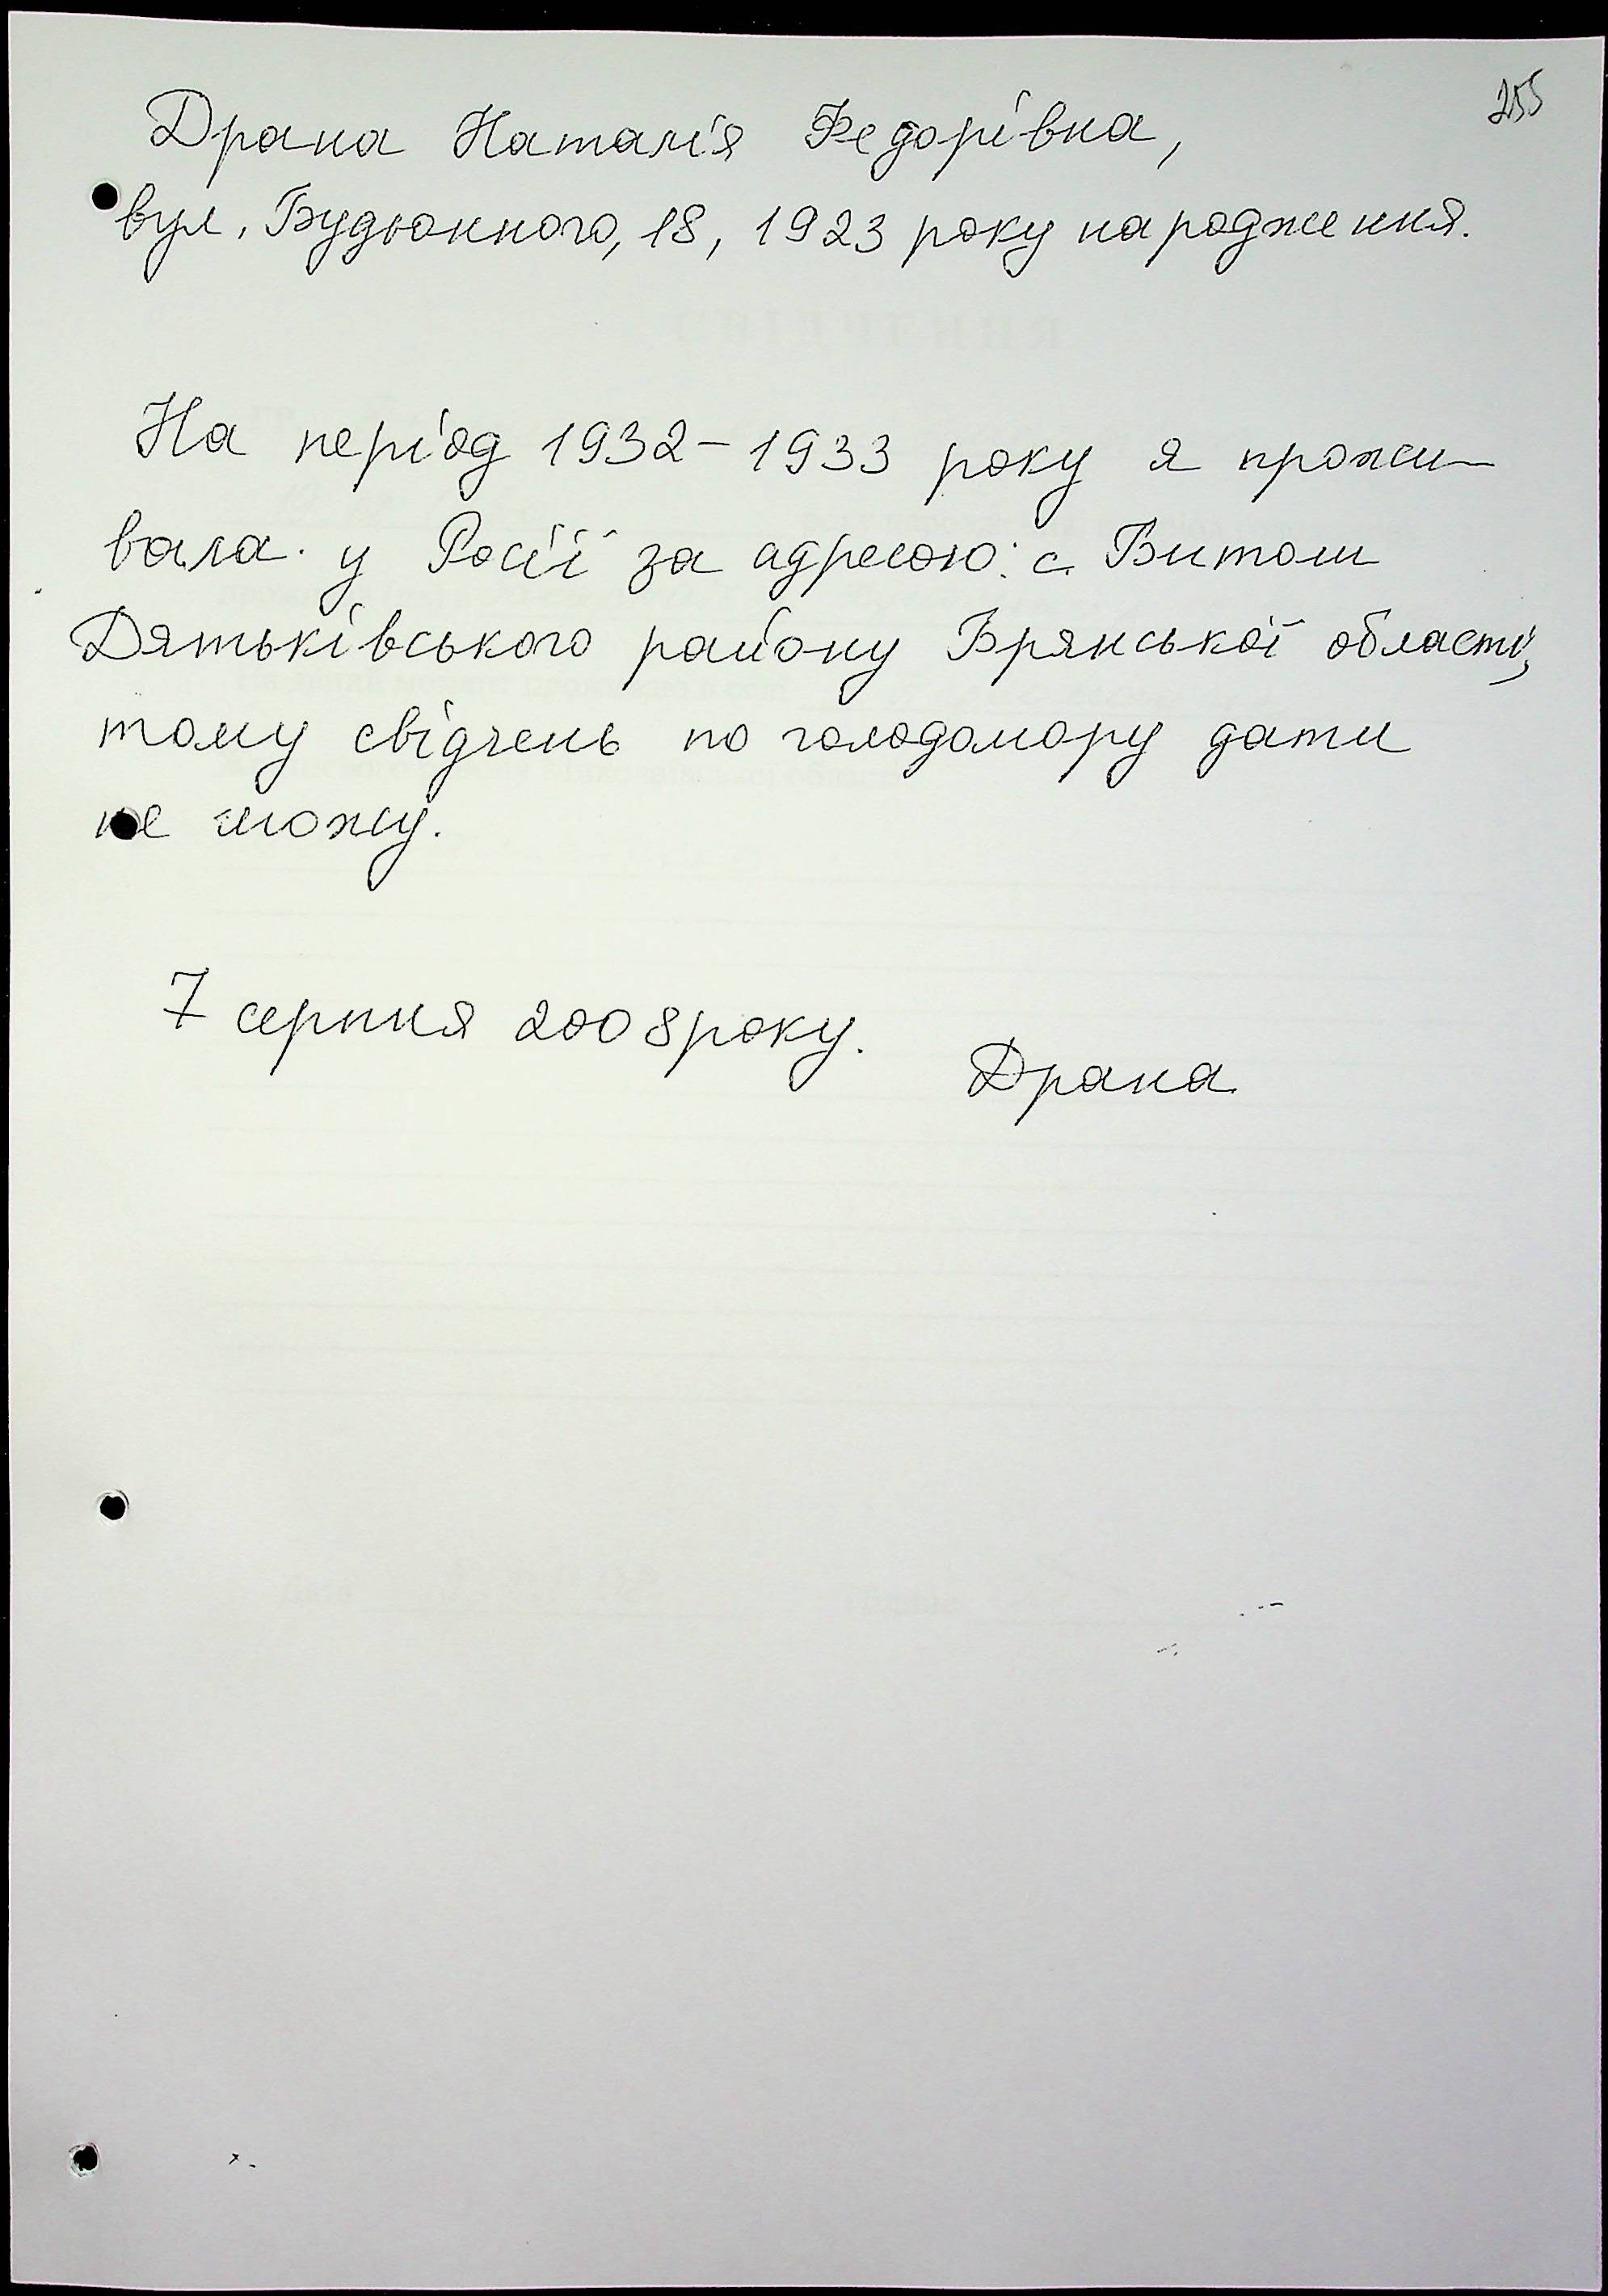 255
Драна Наталія Федорівна,
вул. Будьонного, 18, 1923 року народження.
На період 1932-1933 року я прожи-
вала у Росії за адресою: с. Витош
Дятьківського району Брянської області,
тому свідчень по голодомору дати
не можу.
7 серпня 2008 року.
Драна